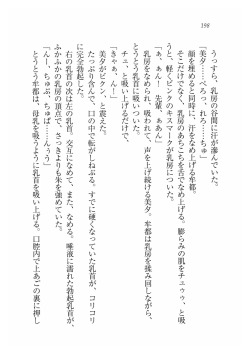 198
うっすら、乳房の谷間に汗が滲んでいた。
「美夕……ぺろっ、れろ……ちゅ」
顔を埋めると同時に、汗をなめ上げる牟都。
そこだけでなく、乳房のあちこちを舌でなめ上げる。膨らみの肌をチュゥゥ、と吸
うと、軽くピンクのキスマークが乳房についた。
「ぁ、ぁんー……先輩、ぁあん」
乳房をなめられ、吸われて、声を上げ続ける美夕。牟都は乳房を揉み回しながら、
とうとう乳首に吸いついた。
チュ、と吸い上げるだけで、
「きゃぁ、ん……」
美夕がビクン、と震えた。
たっぷり含んで、口の中で転がしねぶる。すでに硬くなっていた乳首が、コリコリ
に完全勃起した。
右の乳首の次は左の乳首。交互になめて、また、なめる。唾液に濡れた勃起乳首が、
ふかふかの乳房の頂点で、さっきよりも朱を強めていた。
「んー、ちゅぶ、ちゅぱ……んぅう」
とうとう牟都は、母乳を吸うように乳首を吸い上げる。口腔内で上あごの裏に押し